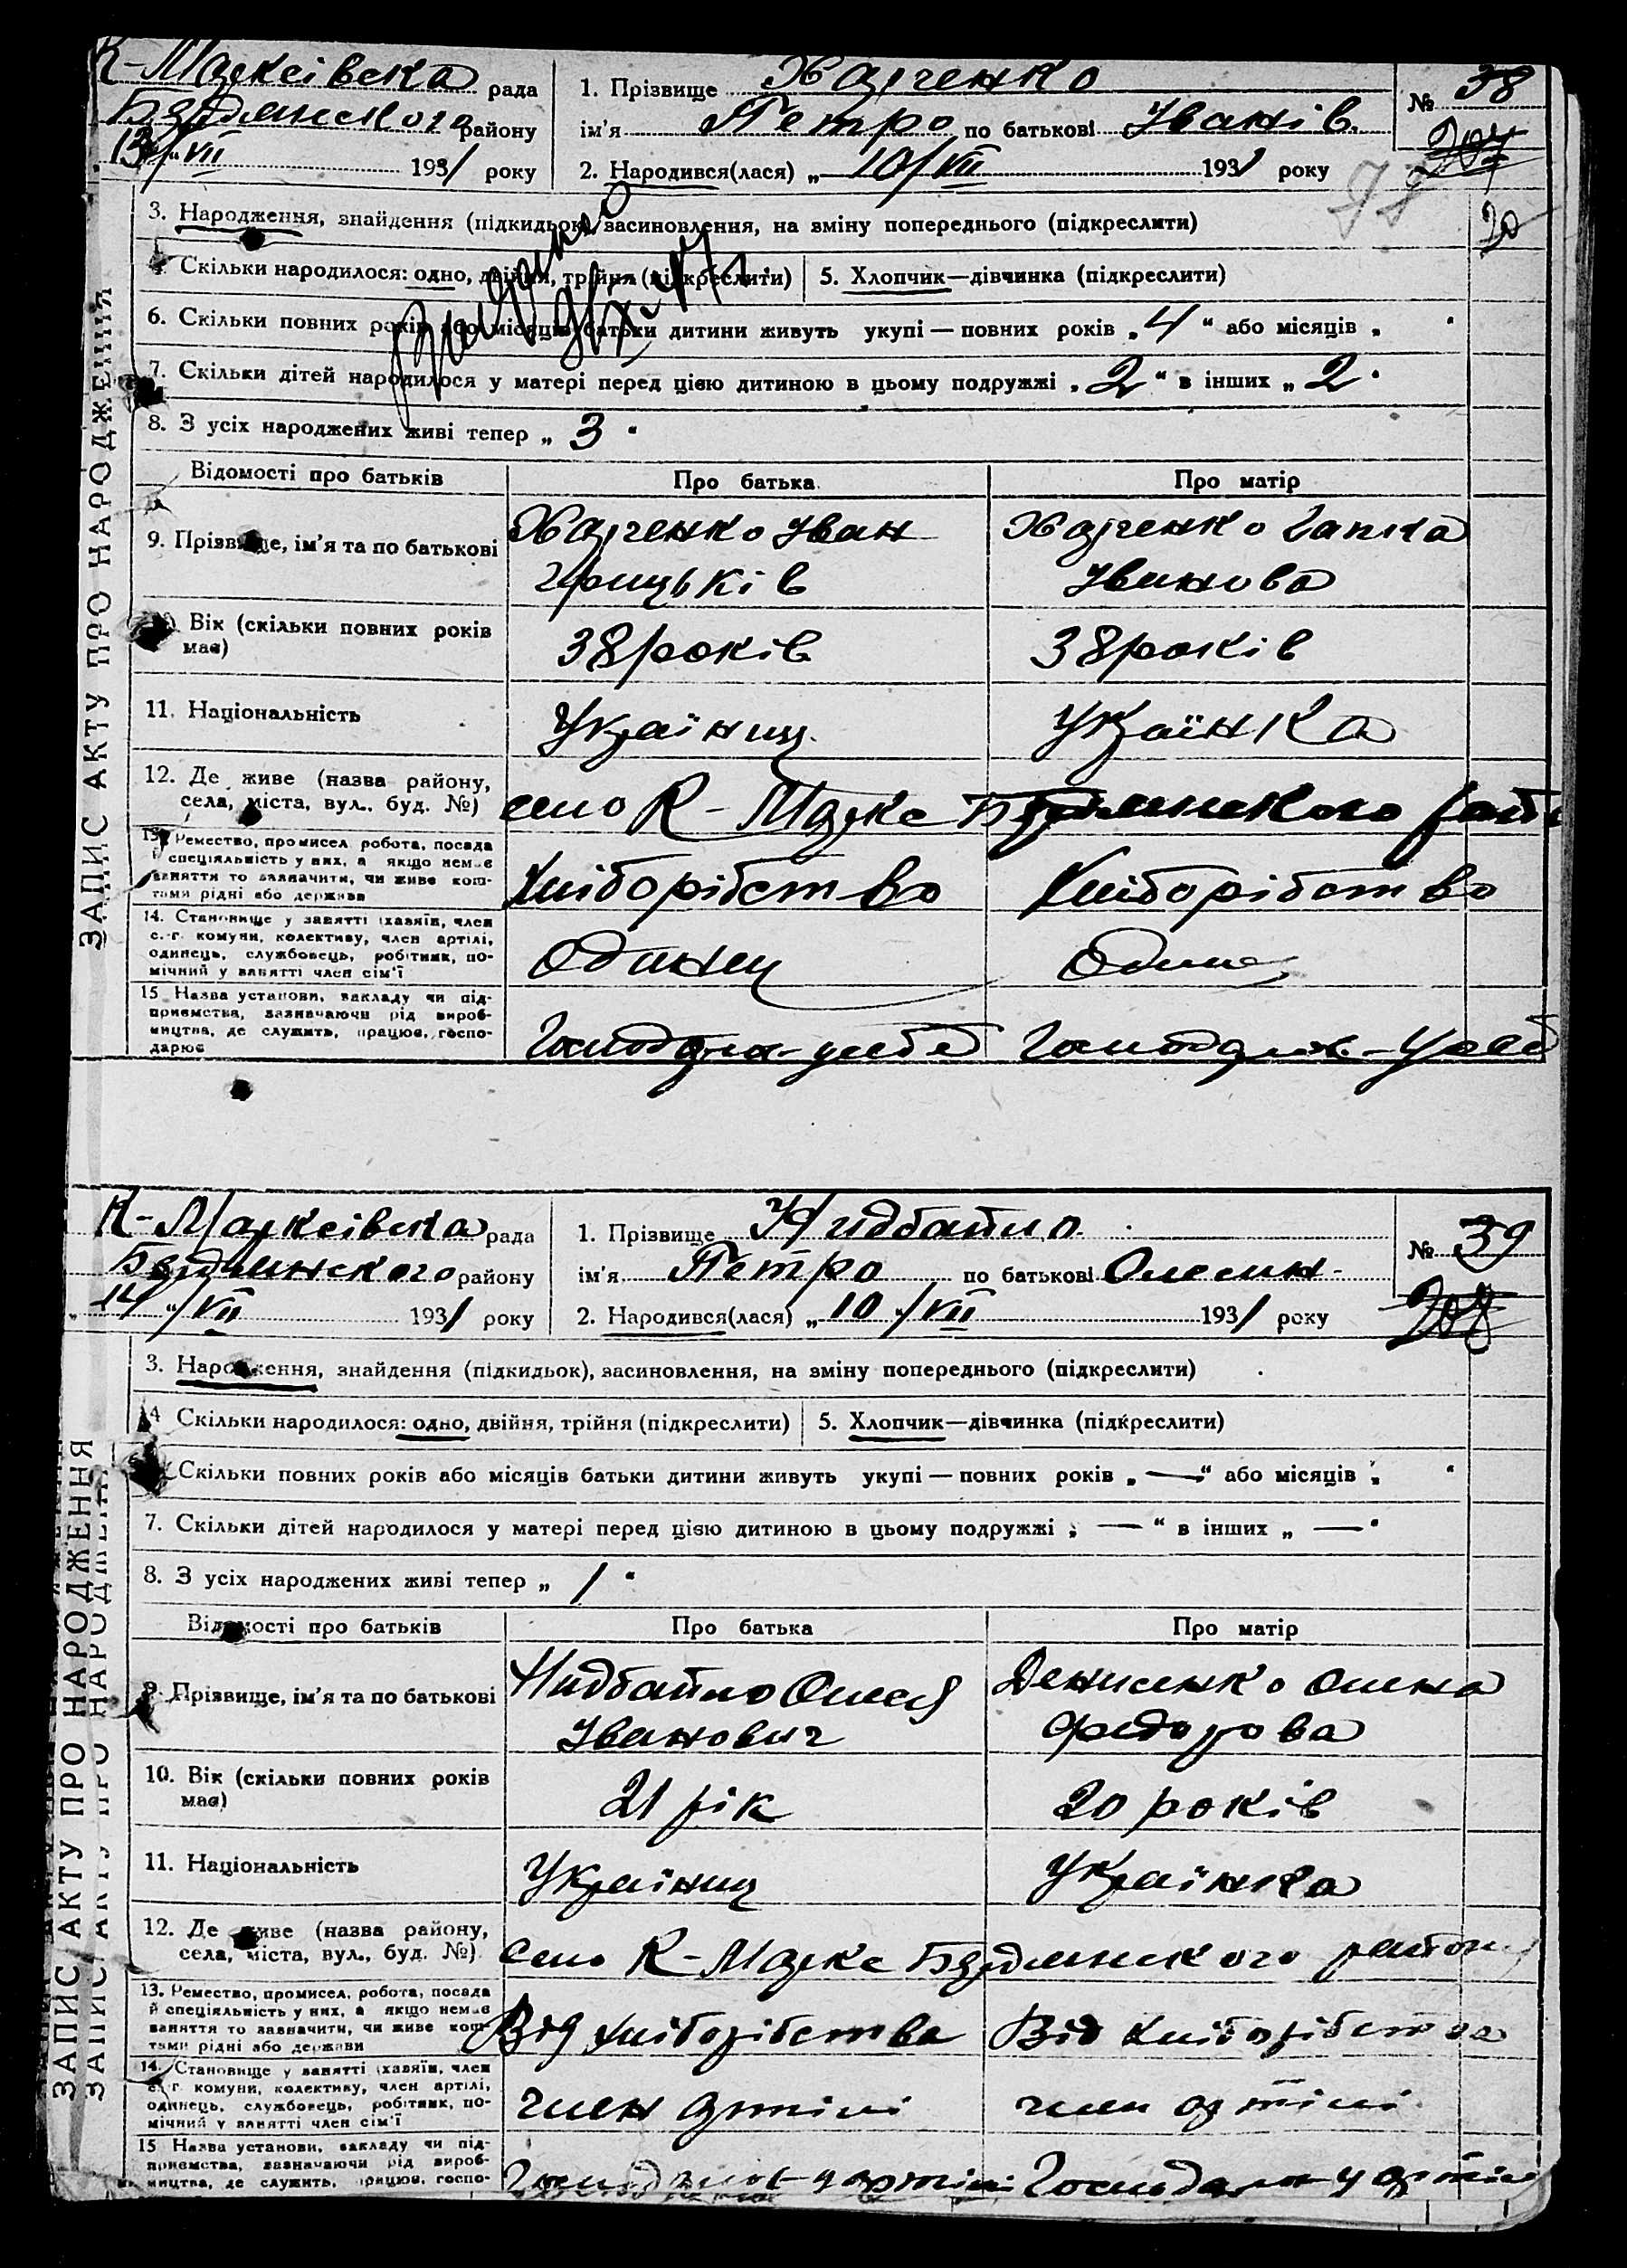 К-Марксівська рада
Бердянського району
13/VII 1931 року
1. Прізвище Харченко
ім'я Петро по батькові Іванів.
2. Народився(лася) „ 10/VII 1931 року
№ 38
207
20
3. Народження, знайдення (підкидьок), засиновлення, на зміну попереднього (підкреслити)
4. Скільки народилося: одно, двійня, трійня (підкреслити) 5. Хлопчик—дівчинка (підкреслити)
6. Скільки повних років або місяців батьки дитини живуть укупі — повних років „ 4 “ або місяців „ “
7. Скільки дітей народилося у матері перед цією дитиною в цьому подружжі „ 2 “ в інших „ 2 “
8. З усіх народжених живі тепер „ 3 “
Відомості про батьків Про батька Про матір
9. Прізвище, ім'я та по батькові Харченко Іван Харченко Гапка
Грицьків Іванова
Вік (скільки повних років має) 38 років 38 років
11. Національність Українец Українка
12. Де живе (назва району,
села, міста, вул., буд. №) село К-Маркс Бердянського
13. Ремество, промисел, робота, посада
й спеціяльність у них, а якщо немає
заняття то зазначити, чи живе кош-
тами рідні або держави
Хліборібство Хліборібство
14. Становище у занятті (хазяїн, член
с.-г. комуни, колективу, член артілі,
одинець, службовець, робітник, по-
мічний у занятті член сім'ї
Одинец Одинец
15 Назва установи, закладу чи під-
приємства, зазначаючи рід вироб-
ництва, де служить, працює, госпо-
дарює
ЗАПИС АКТУ ПРО НАРОДЖЕННЯ
К-Марксівська рада
Бердянського району
14/VII 1931 року
1. Прізвище Нидбайло
ім'я Петро по батькові Олексин
2. Народився(лася) „ 10/VII 1931 року
№ 39
208
3. Народження, знайдення (підкидьок), засиновлення, на зміну попереднього (підкреслити)
4 Скільки народилося: одно, двійня, трійня (підкреслити) 5. Хлопчик—дівчинка (підкреслити)
Скільки повних років або місяців батьки дитини живуть укупі — повних років „ — “ або місяців „ “
7. Скільки дітей народилося у матері перед цією дитиною в цьому подружжі „ — “ в інших „ — “
8. З усіх народжених живі тепер „ 1 “
Відомості про батьків Про батька Про матір
9. Прізвище, ім'я та по батькові Нидбайло Денисенко Олена
Іванович Федорова
10. Вік (скільки повних років має) 21 рік 20 років
11. Національність Українец Українка
12. Де живе (назва району,
села, міста, вул., буд. №) Село К-Маркс Бердянського району
13. Ремество, промисел, робота, посада
й спеціяльність у них, а якщо немає
заняття то зазначити, чи живе кош-
тами рідні або держави
Від хліборібства Від хліборібства
14. Становище у занятті (хазяїн, член
с.-г. комуни, колективу, член артілі,
одинець, службовець, робітник, по-
мічний у занятті член сім'ї
член артілі член артілі
15 Назва установи, закладу чи під-
приємства, зазначаючи рід вироб-
ництва, де служить, працює, госпо-
у артілі у артілі
ЗАПИС АКТУ ПРО НАРОДЖЕННЯ
ЗАПИС АКТУ ПРО НАРОДЖЕННЯ